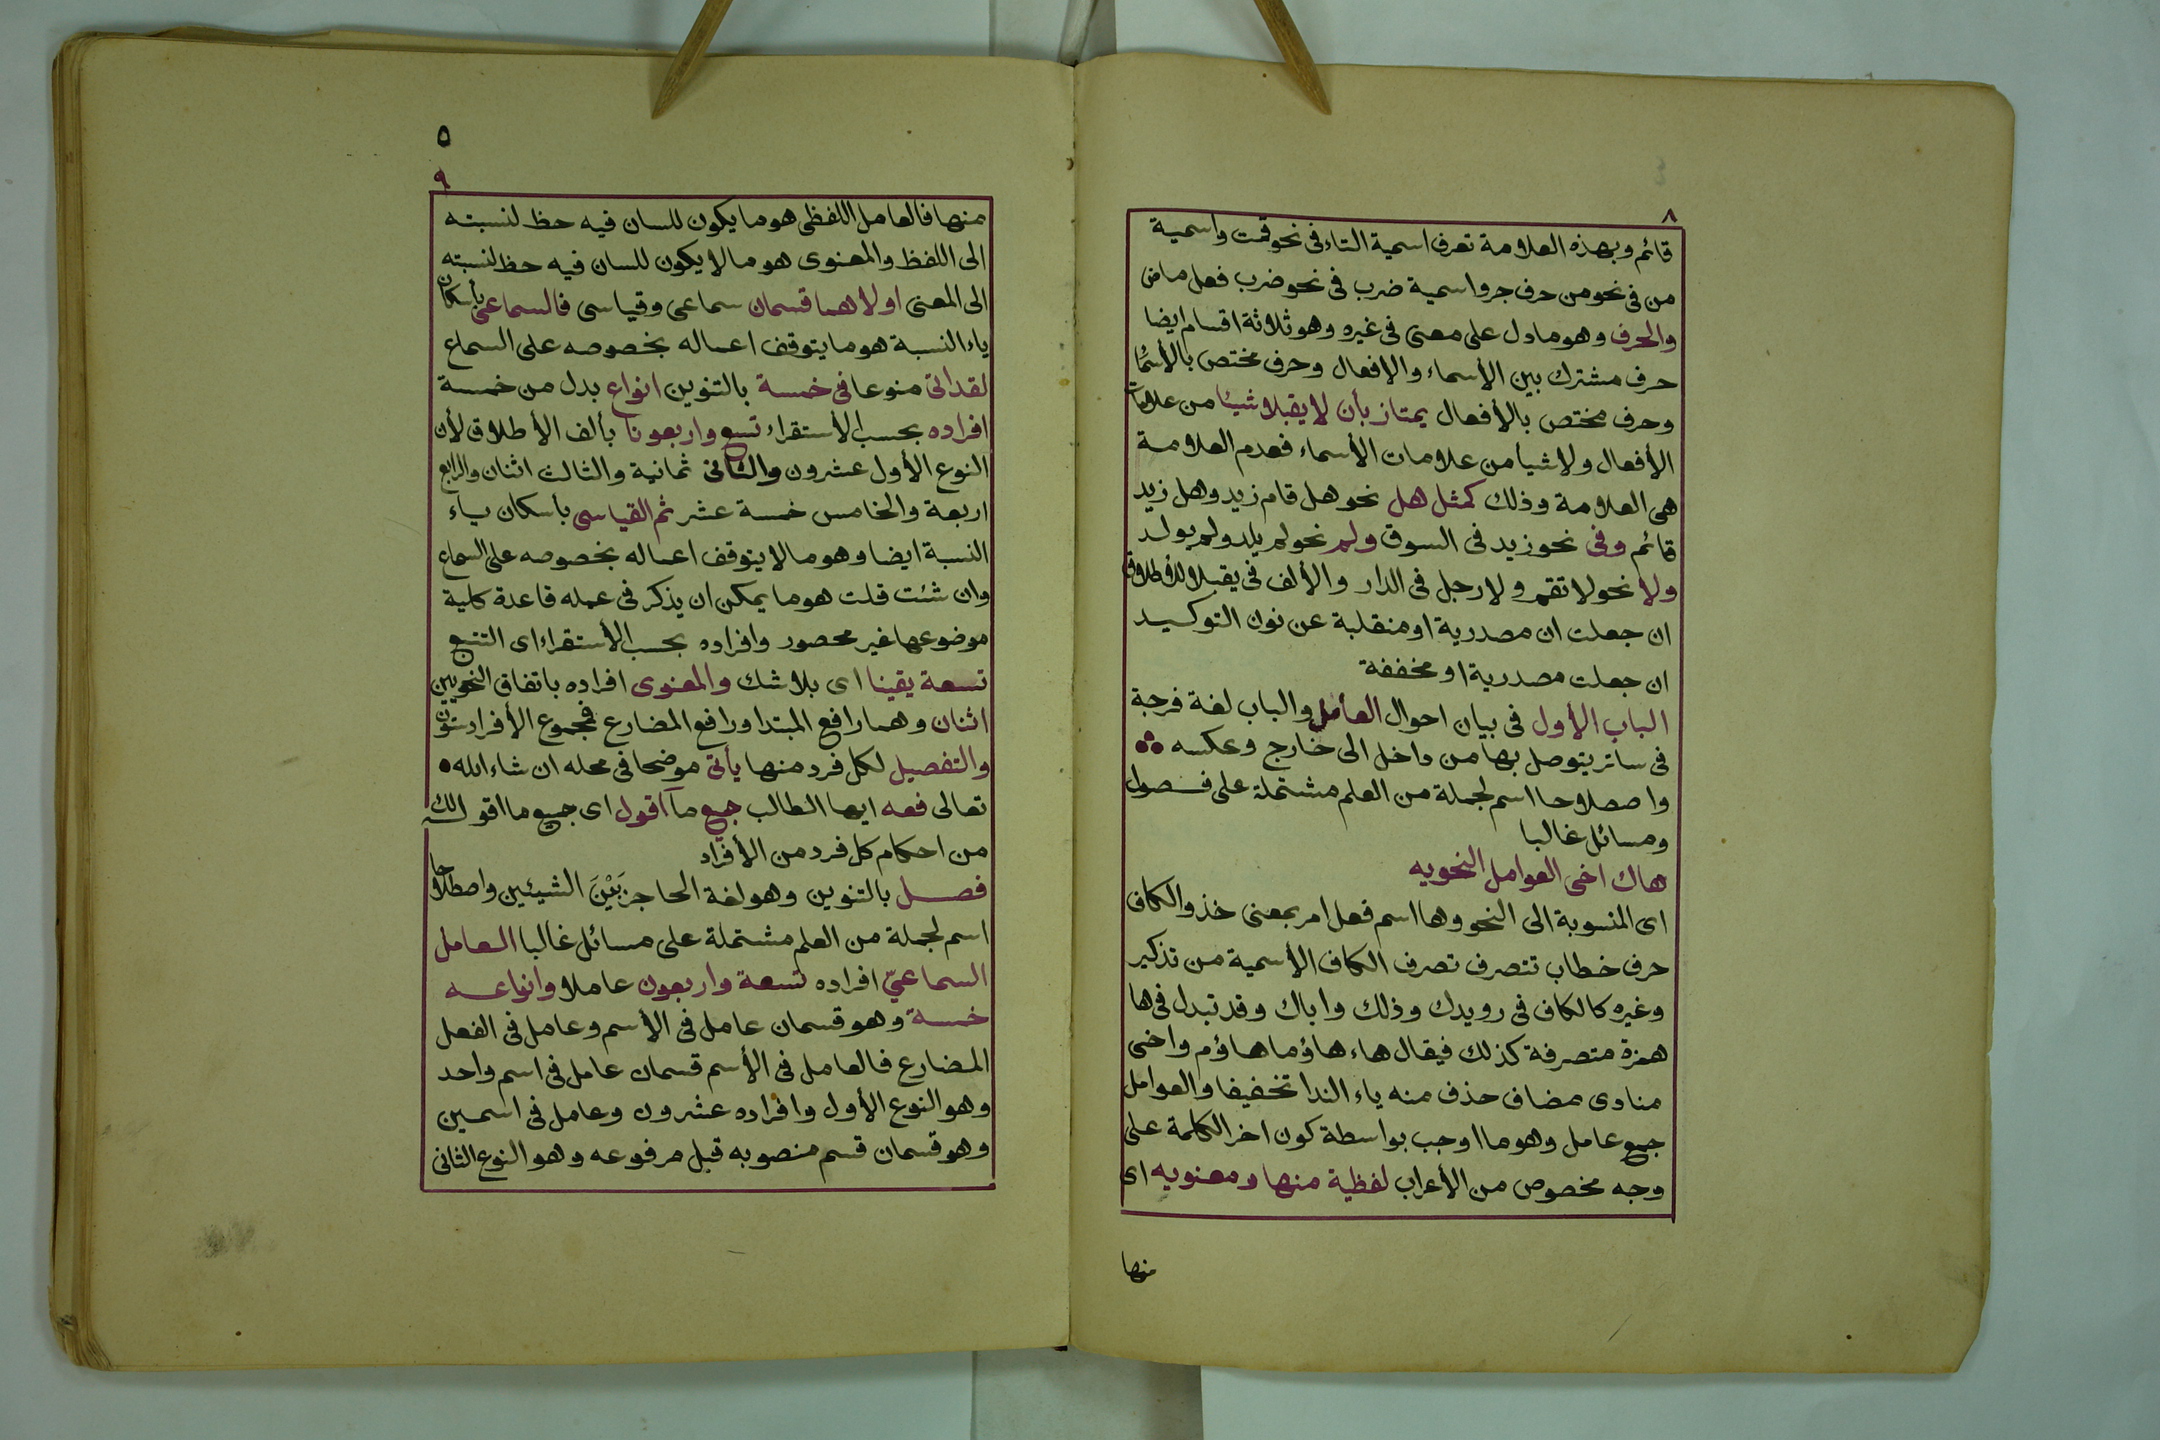 ٨
قائم وبهذه العلامة تعرف اسمية التاء فى نحو قمت واسمية
من فى نحو من حرف جر واسمية ضرب فى نحو ضرب فعل ماض
والحرف وهو ما دل على معنى فى غيره وهو ثلاثة اقسام ايضا
حرف مشترك بين الأسماء والافعال وحرف مختص بالأسما
وحرف مختص بالأفعال يمتاز بأن لا يقبلا شيئا من علامات
الأفعال ولا شيأ من علامات الأسماء فعدم العلامة
هى العلامة وذلك كمثل هل نحو هل قام زيد وهل زيد
قائم وفى نحو زيد فى السوق ولم نحو لم يلد ولم يولد
ولا نحو لا تقم ولا رجل فى الدار والألف فى يقبلا للأطلاق
ان جعلت ان مصدرية او منقلبة عن نون التوكيد
ان جعلت مصدرية او مخففة
الباب الأول فى بيان احوال العأمل والباب لغة فرجة
فى ساتر يتوصل بها من داخل الى خارج وعكسه
واصطلاحا اسم لجملة من العلم مشتملة على فصول
ومسائل غالبا
هاك اخى العوامل النحويه
اى المنسوبة الى النحو وها اسم فعل امر بمعنى خذ والكاف
حرف خطاب تتصرف تصرف الكاف الأسمية من تذكير
وغيره كالكاف فى رويدك وذلك واباك وقد تبدل فى ها
همزة متصرفة كذلك فيقال هاء هاؤما هاؤم واخى
منادى مضاف حذف منه ياء الندا تخفيفا والعوامل
جمع عامل وهو ما اوجب بواسطة كون اخر الكلمة على
وجه مخصوص من الأعراب لفظية منها ومعنويه اى
منها
٥
٩
منها فالعامل اللفظى هو ما يكون للسان فيه حظ لنسبته
الى اللفظ والمعنوى هو ما لا يكون للسان فيه حظ لنسبته
الى المعنى اولاهما قسمان سماعى وقياسى فالسماعى بأسكان
ياء النسبة هو ما يتوقف اعماله بخصوصه على السماع
لقد اتى منوعا فى خمسة بالتنوين انواع بدل من خمسة
افراده بحسب الأستقراء تسع واربعونا بألف الأطلاق لأن
النوع الأول عشرون والثانى ثمانية والثالث اثنان والرابع
اربعة والخامس خمسة عشر ثم القياسى بأسكان ياء
النسبة ايضا وهو ما لا يتوقف اعماله بخصوصه على السماع
وان شئت قلت هو ما يمكن ان يذكر فى عمله قاعدة كلية
موضوعها غير محصور وافراده بحسب الأستقراء اى التتبع
تسعة يقينا اى بلا شك والمعنوى افراده باتفاق النحويين
اثنان وهما رافع المبتدا ورافع المضارع فمجموع الأفراد ستون
والتفصيل لكل فرد منها يأتى موضحا فى محله ان شاء الله
تعالى فعه ايها الطالب جمع ما اقول اى جميع ما اقول لك
من احكام كل فرد من الأفراد
فصل بالتنوين وهو لغة الحاجز بَيْنَ الشيئين واصطلاحا
اسم لجملة من العلم مشتملة على مسائل غالبا العامل
السماعىّ افراده تسعة واربعون عاملا وانواعه
خمسة وهو قسمان عامل فى الأسم وعامل فى الفعل
المضارع فالعامل فى الأسم قسمان عامل فى اسم واحد
وهو النوع الأول وافراده عشرون وعامل فى اسمين
وهو قسمان قسم منصوبه قبل مرفوعه وهو النوع الثانى